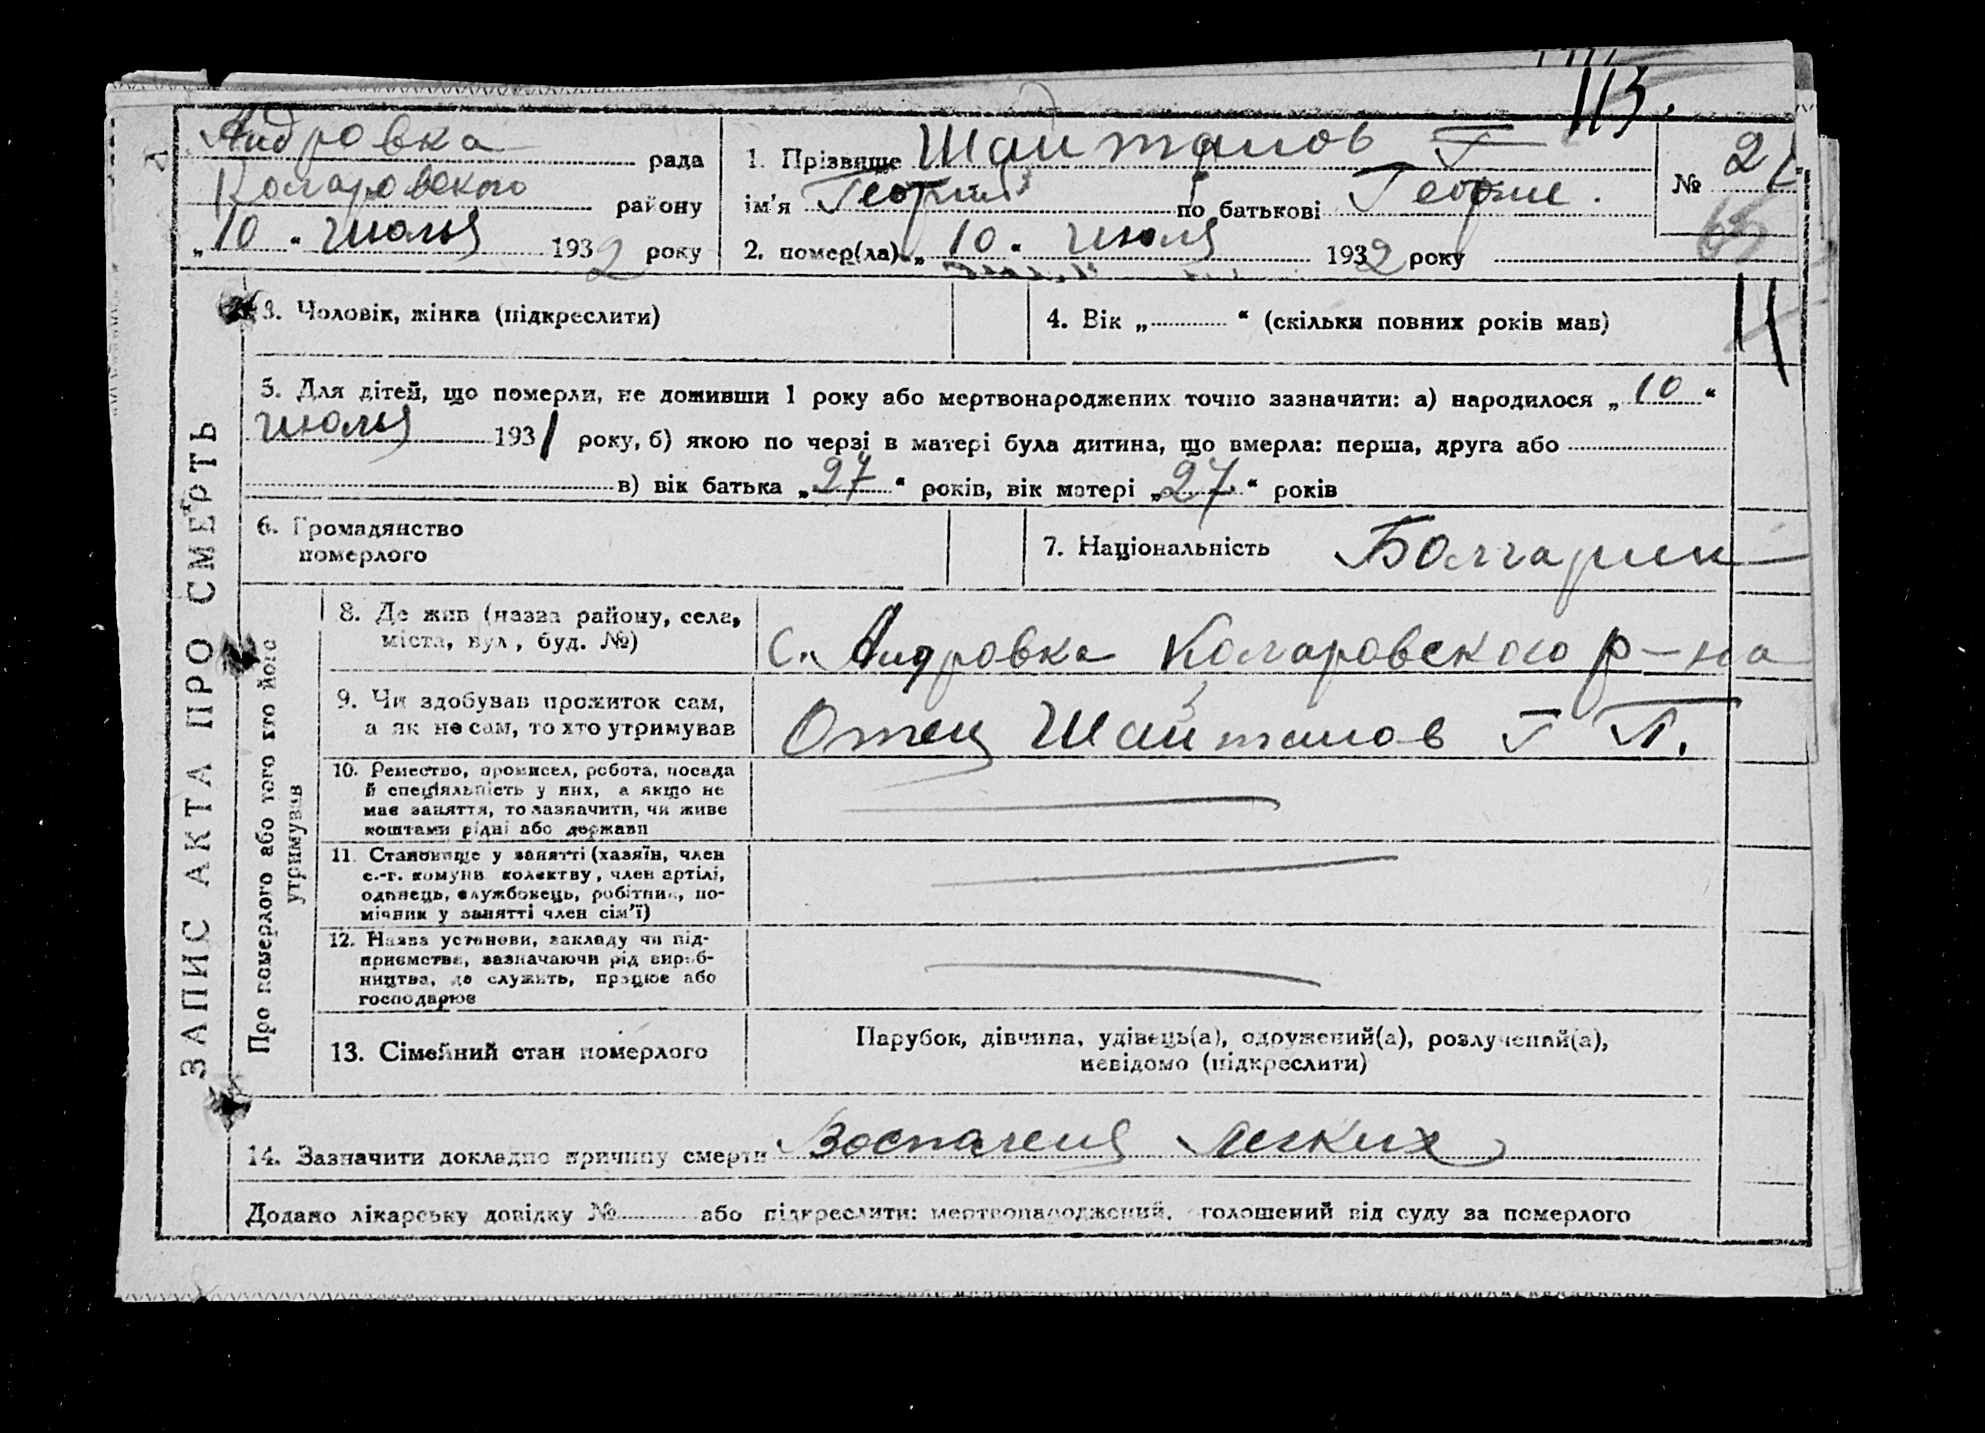 113.
Андровка рада
Коларовского району
„10“ июля 1932 року
1. Прізвище Шайтанов Г
ім'я Георгий по батькові Георги.
2. помер(ла) „10“ июля 1932 року
№ 21
63
ЗАПИС АКТА ПРО СМЕРТЬ
3. Чоловік, жінка (підкреслити)
4. Вік „ “ (скільки повних років мав)
5. Для дітей, що померли, не доживши 1 року або мертвонароджених точно зазначити: а) народилося „10“
июля 1931 року, б) якою по черзі в матері була дитина, що вмерла: перша, друга або
в) вік батька „27“ років, вік матері „27“ років
6. Громадянство
померлого
7. Національність Болгарин
Про померлого або того хто його
утримував
8. Де жив (назва району, села,
міста, вул., буд. №)
с. Андровка Коларовского р-на
9. Чи здобував прожиток сам,
а як не сам, то хто утримував
Отец Шайтанов Г П.
10. Ремество, промисел, робота, посада
й спеціяльність у них, а якщо не
має заняття, то зазначити, чи живе
коштами рідні або держави
11. Становище у занятті (хазяїн, член
с.-г. комуни колективу, член артілі,
одинець, службовець, робітник, по-
мічник у занятті член сім'ї)
12. Назва установи, закладу чи під-
приємства, зазначаючи рід вироб-
ництва, де служить, працює або
господарює
13. Сімейний стан померлого
Парубок, дівчина, удівець(а), одружений(а), розлучений(а),
невідомо (підкреслити)
14. Зазначити докладно причину смерти Воспаления Легких
Додано лікарську довідку № або підкреслити: мертвонароджений, оголошений від суду за померлого